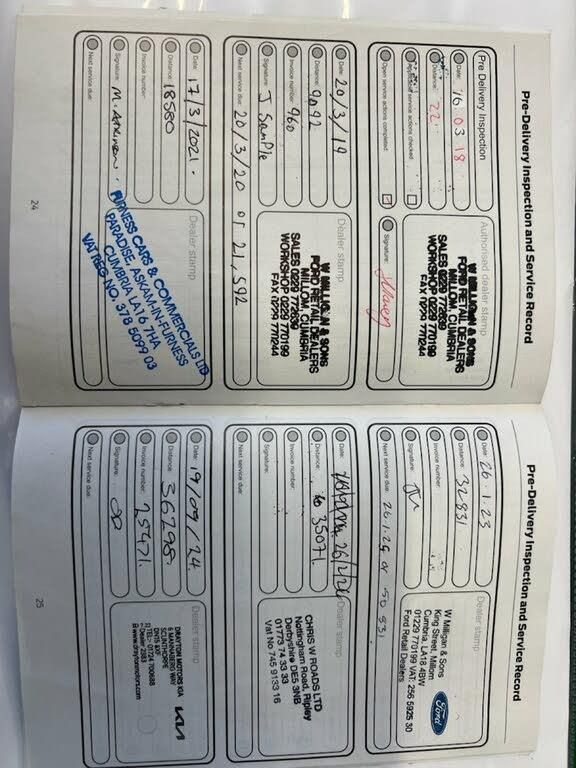 Pre-Delivery Inspection and Service Record
Pre Delivery Inspection
Date: 16 03 18
Distance: 22
Approved service actions checked
Open service actions completed
Authorised dealer stamp
W MILLIGAN & SONS
FORD RETAIL DEALERS
MILLOM, CUMBRIA
SALES 0229 772639
WORKSHOP 0229 770199
FAX 0229 771244
Signature:
Date: 20/3/19
Distance: 9092
Invoice number: 960
Signature: J Sample
Next service due: 20/3/20 or 21,592
Dealer stamp
W MILLIGAN & SONS
FORD RETAIL DEALERS
MILLOM, CUMBRIA
SALES 0229 772639
WORKSHOP 0229 770199
FAX 0229 771244
Date: 17/3/2021.
Distance: 18580
Invoice number:
Signature: M. Atkinson.
Next service due:
Dealer stamp
FURNESS CARS & COMMERCIALS LTD
PARADISE, ASKAM-IN-FURNESS
CUMBRIA LA16 7HA
VAT REG NO. 378 5099 03
24
Pre-Delivery Inspection and Service Record
Date: 26.1.23
Distance: 32831
Invoice number:
Signature:
Next service due: 26.1.25 or 50 831
Dealer stamp
Ford
W Milligan & Sons
King Street, Millom
Cumbria, LA18 4BW
01229 770199 VAT: 256 5925 30
Ford Retail Dealers
Date: 26/2/24
Distance: 35071.
Invoice number:
Signature:
Next service due:
Dealer stamp
CHRIS W ROADS LTD
Nottingham Road, Ripley
Derbyshire DE5 3NB
01773 74 33 33
Vat No 745 9133 16
Date: 19/09/24.
Distance: 36298.
Invoice number: 25471.
Signature:
Next service due:
Dealer stamp
DRAYTON MOTORS KIA
6 MANNABERG WAY
SCUNTHORPE
DN15 8XF
TEL: 01724 700888
Dealer 2383
www.draytonmotors.com
KIA
25